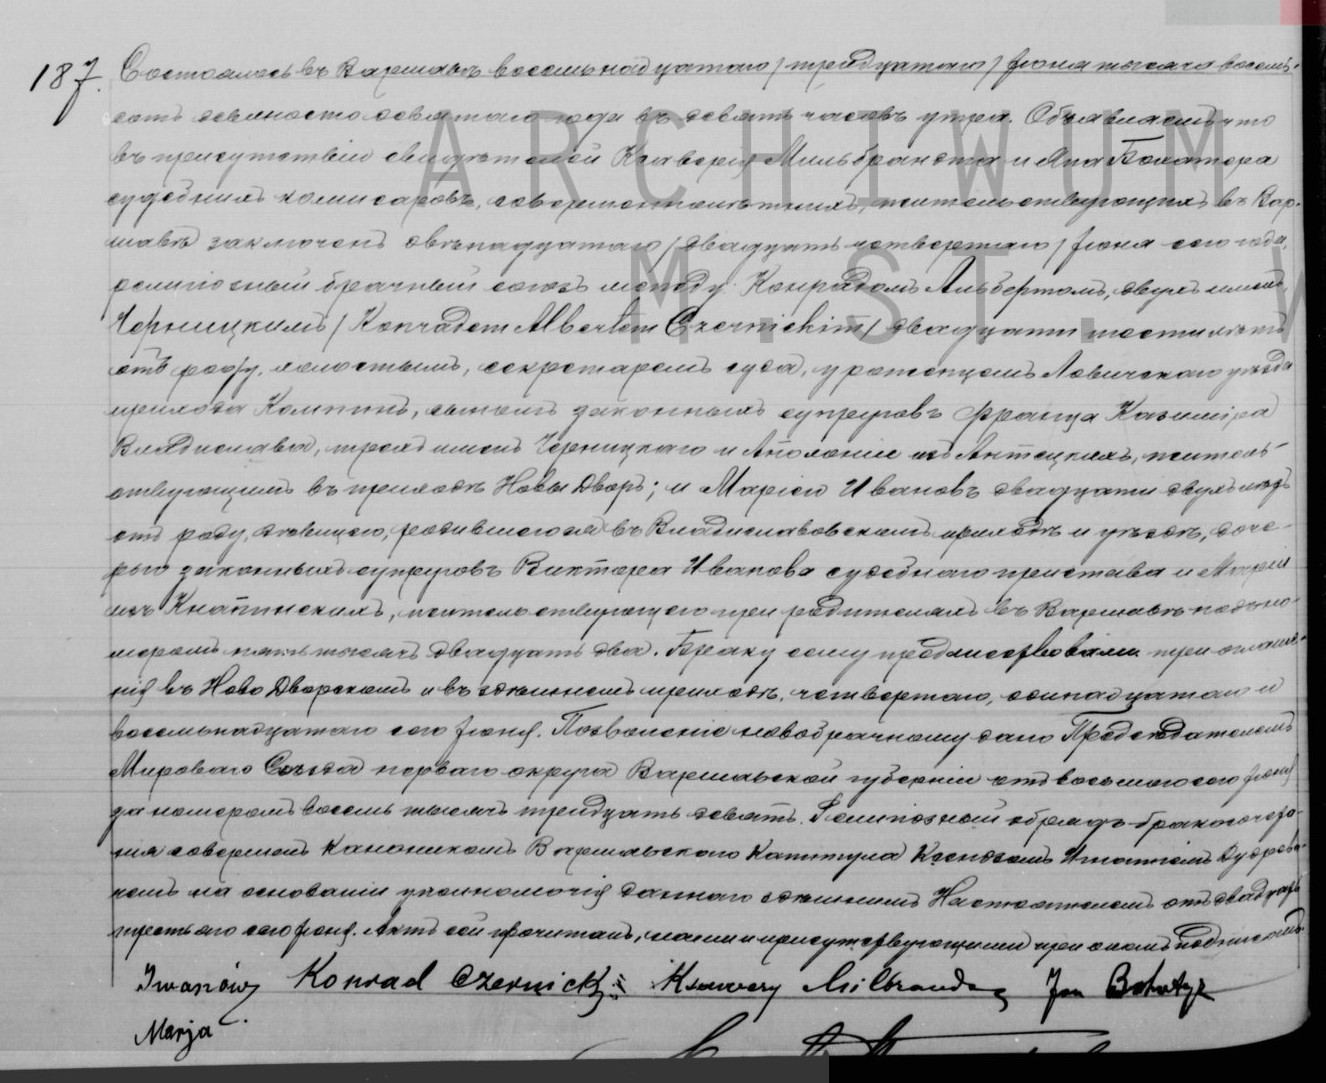 187. Состоялось въ Варшавѣ восемьнадцатаго /тридцатаго/ Іюня тысяча восемь-
сотъ девяносто девятаго года въ девять часовъ утра. Объявляемъ что
въ присутствіи свидѣтелей Ксаверія Мильбрандта и Яна
судебныхъ комисаровъ, совершеннолѣтнихъ, жительствующихъ въ Вар-
шавѣ заключенъ двѣнадцатаго /двадцать четвертаго/ Іюня сего года,
религіозный брачный союзъ между Конрадомъ Альбертомъ, двухъ именъ,
Черницкимъ /Konradem Albertem Czernickim/ двадцати шести лѣтъ
отъ роду, холостымъ, секретаремъ суда, уроженцемъ Ловичскаго уѣзда
прихода Компинъ, сыномъ законныхъ супруговъ Франца Казиміра
Владислава, трехъ именъ Черницкаго и Аполоніи изъ жительствующимъ
въ приходѣ Новы Дворъ; и Маріею Ивановъ двадцати двухъ лѣтъ
отъ роду, дѣвицею, родившеюся въ Владиславовскомъ приходѣ и уѣздѣ, доче-
рью законныхъ супруговъ Виктора Иванова судебнаго пристава и Маріи
изъ жительствующею при родителяхъ въ Варшавѣ подъ но-
меромъ пять тысячъ двадцать два. Браку сему предшествовали три оглаше-
нія въ Ново Дворскомъ и въ здѣшнемъ приходѣ, четвертаго, одинадцатаго и
восемьнадцатаго сего Іюня. Позволеніе новобрачному дано Предсѣдателемъ
Мироваго Съѣзда перваго округа Варшавской губерніи отъ восьмаго сего Іюня
за номеромъ восемь тысячъ тридцать девять. Религіозный обрядъ бракосочета-
нія совершенъ Каноникомъ Варшавскаго Капитула Ксендзомъ Игнатіемъ
на основаніи уполномочія даннаго здѣшнимъ Настоятелемъ отъ двадцать
третьяго сего Іюня. Актъ сей прочитанъ, нами и присутствующими при ономъ подписанъ.
Iwanów Konrad Czernicki Ksawery Milbrandt Jan
Marja
ARCHIWUM
M. ST. W